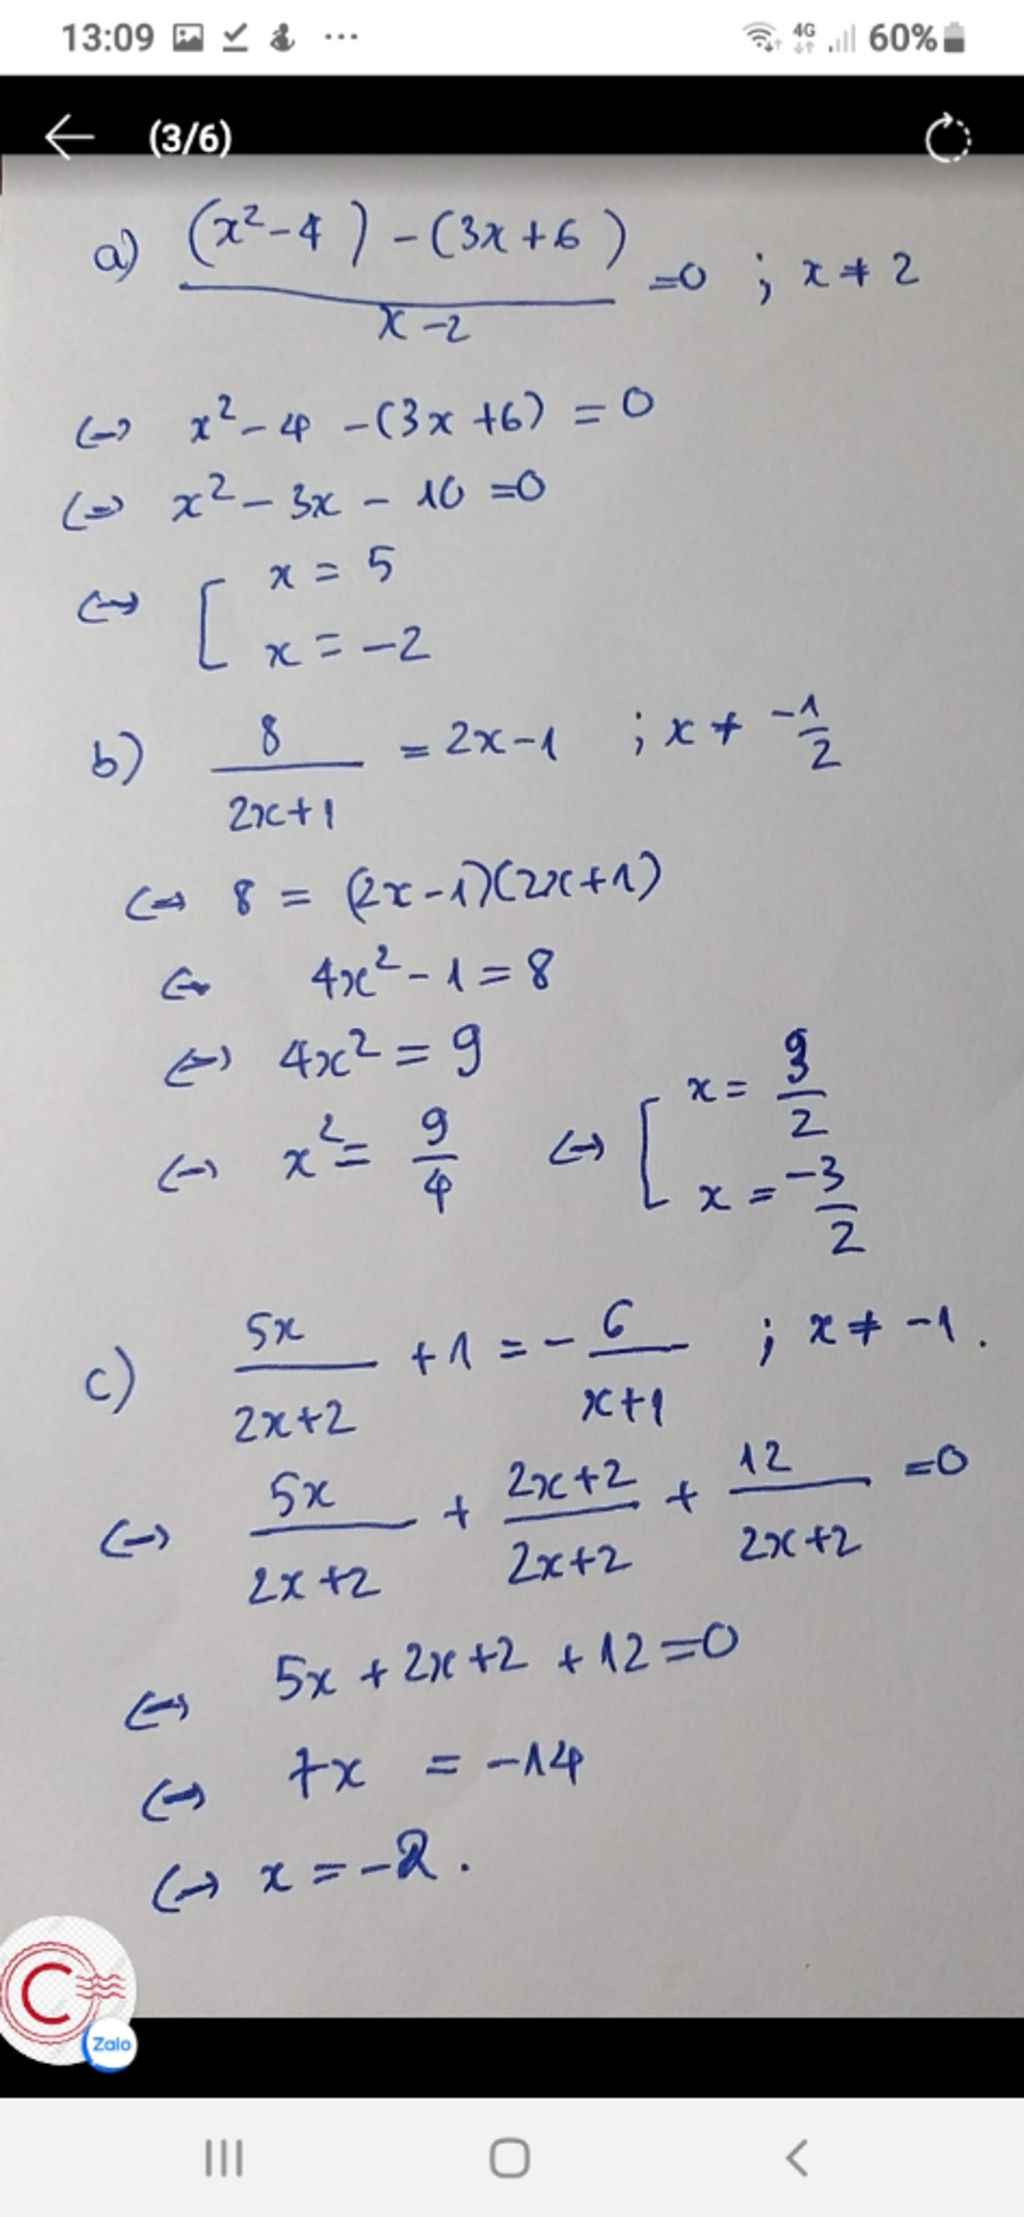 13:09 ... 4G 60%
(3/6)
a) ((x²-4) - (3x+6))/(x-2) =0 ; x ≠ 2
<=> x² - 4 - (3x +6) = 0
<=> x² - 3x - 10 =0
<=> [ x = 5
x = -2
b) 8/(2x+1) = 2x-1 ; x ≠ -1/2
<=> 8 = (2x-1)(2x+1)
<=> 4x² - 1 = 8
<=> 4x² = 9
<=> x² = 9/4 <=> [ x = 3/2
x = -3/2
c) 5x/(2x+2) + 1 = - 6/(x+1) ; x ≠ -1.
<=> 5x/(2x+2) + (2x+2)/(2x+2) + 12/(2x+2) =0
<=> 5x + 2x +2 + 12 =0
<=> 7x = -14
<=> x = -2.
C
Zalo